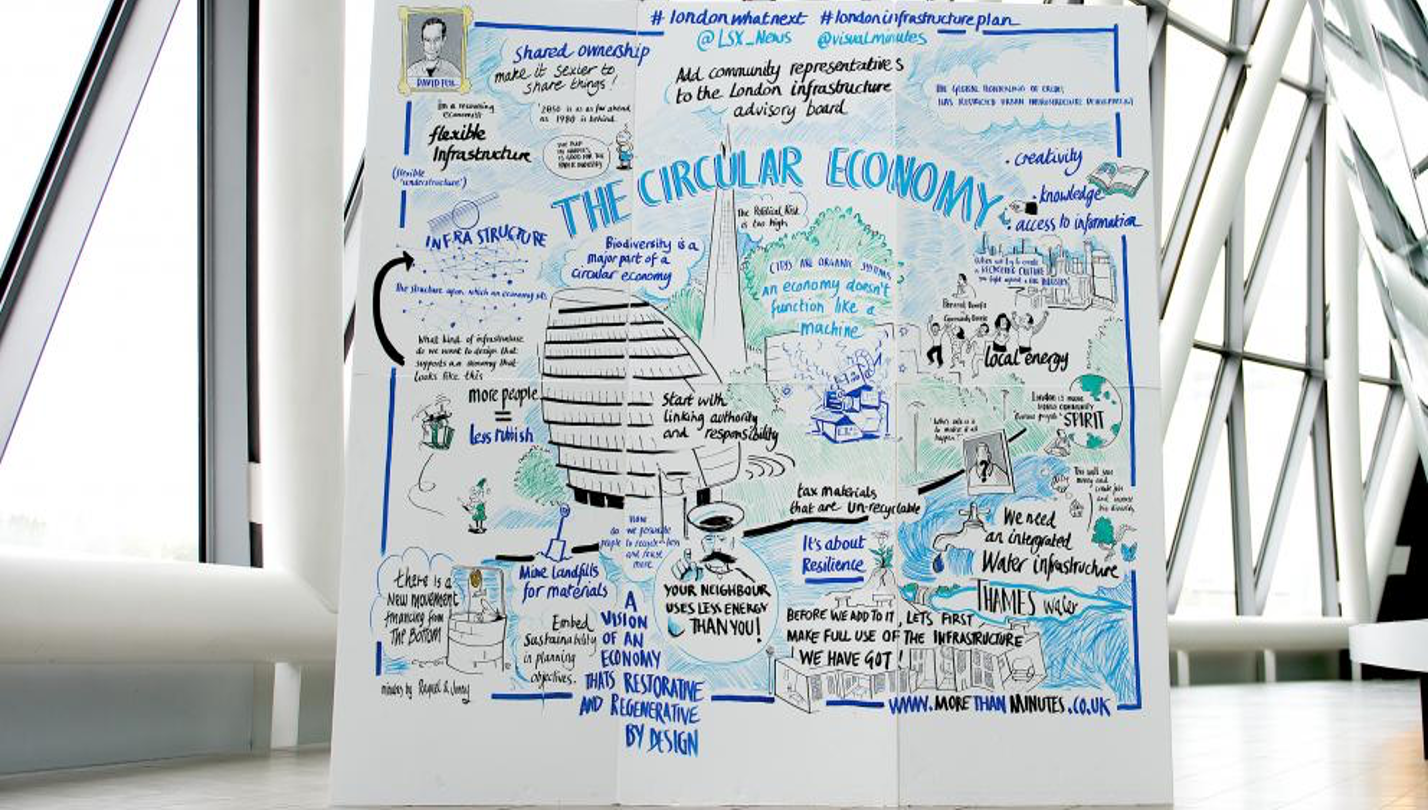 # londonwhatnext #londoninfrastructureplan
@LSX_News @visualminutes
DAVID
shared ownership
make it sexier to
share things!
Add community representatives
to the London infrastructure
advisory board
I'm a recovering
economist
flexible
Infrastructure
(flexible
"understructure")
2050 is as far ahead
as 1980 is behind
THE GLOBAL
HAS RESTRICTED URBAN INFRASTRUCTURE DEVELOPMENT
THE CIRCULAR ECONOMY
• creativity
• knowledge
• access to information
INFRASTRUCTURE
the structure upon which an economy sits
Biodiversity is a
major part of a
circular economy
The Political Risk
is too high
CITIES ARE ORGANIC SYSTEMS
an economy doesn't
function like a
machine
When we try to create
a RECYCLING CULTURE
you fight against a BIG INDUSTRY
Personal Benefit
Community Benefit
local energy
What kind of infrastructure
do we want to design that
supports an economy that
looks like this
more people
=
less rubbish
Start with
linking authority
and responsibility
London is more
SPIRIT
"Who's role is it
to make it all
happen?"
tax materials
that are un-recyclable
We need
an intergrated
Water infrastructure
It's about
Resilience
HOW
do we persuade
people to recycle less
and reuse
more
Mine landfills
for materials
there is a
New movement
financing from
THE BOTTOM
Embed
Sustainability
in planning
objectives.
YOUR NEIGHBOUR
USES LESS ENERGY
THAN YOU!
THAMES water
BEFORE WE ADD TO IT, LETS FIRST
MAKE FULL USE OF THE INFRASTRUCTURE
WE HAVE GOT!
A
VISION
OF AN
ECONOMY
THATS RESTORATIVE
AND REGENERATIVE
BY DESIGN
minutes by Raquel & Jenny
WWW.MORETHANMINUTES.CO.UK